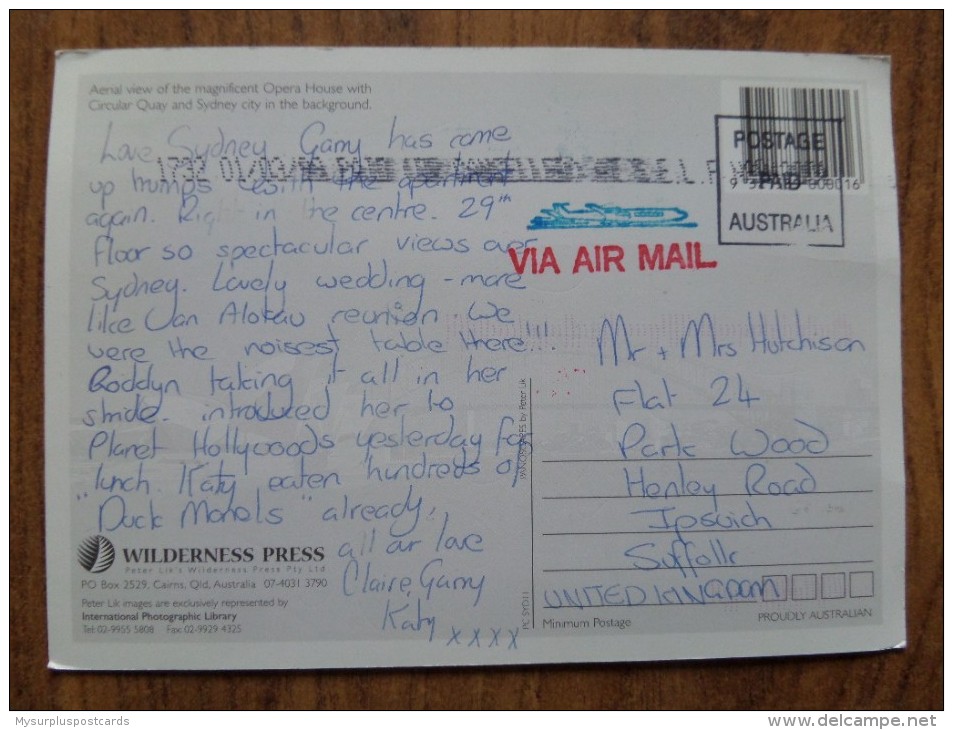 Aerial view of the magnificent Opera House with
Circular Quay and Sydney city in the background.
Love Sydney Garry has come
up trumps with the apartment
again. Right in the centre. 29th
floor so spectacular views over
Sydney. Lovely wedding - more
like Van Alotau reunion. We
were the noisest table there!!!
Roddyn taking it all in her
stride. introduced her to
Planet Hollywoods yesterday for
lunch. Katy eaten hundreds of
"Duck Monols" already.
all our love
Claire, Garry
Katy xxxx
1732 01/03/
POSTAGE
PAID
AUSTRALIA
VIA AIR MAIL
Mr + Mrs Hutchison
Flat 24
Park Wood
Henley Road
Ipswich
Suffolk
UNITED KINGDOM
PANORASCAPES by Peter Lik
PC SYD11
WILDERNESS PRESS
Peter Lik's Wilderness Press Pty Ltd
PO Box 2529, Cairns, Qld, Australia 07-4031 3790
Peter Lik images are exclusively represented by
International Photographic Library
Tel: 02-9955 5808 Fax: 02-9929 4325
Minimum Postage
PROUDLY AUSTRALIAN
Mysurpluspostcards
www.delcampe.net